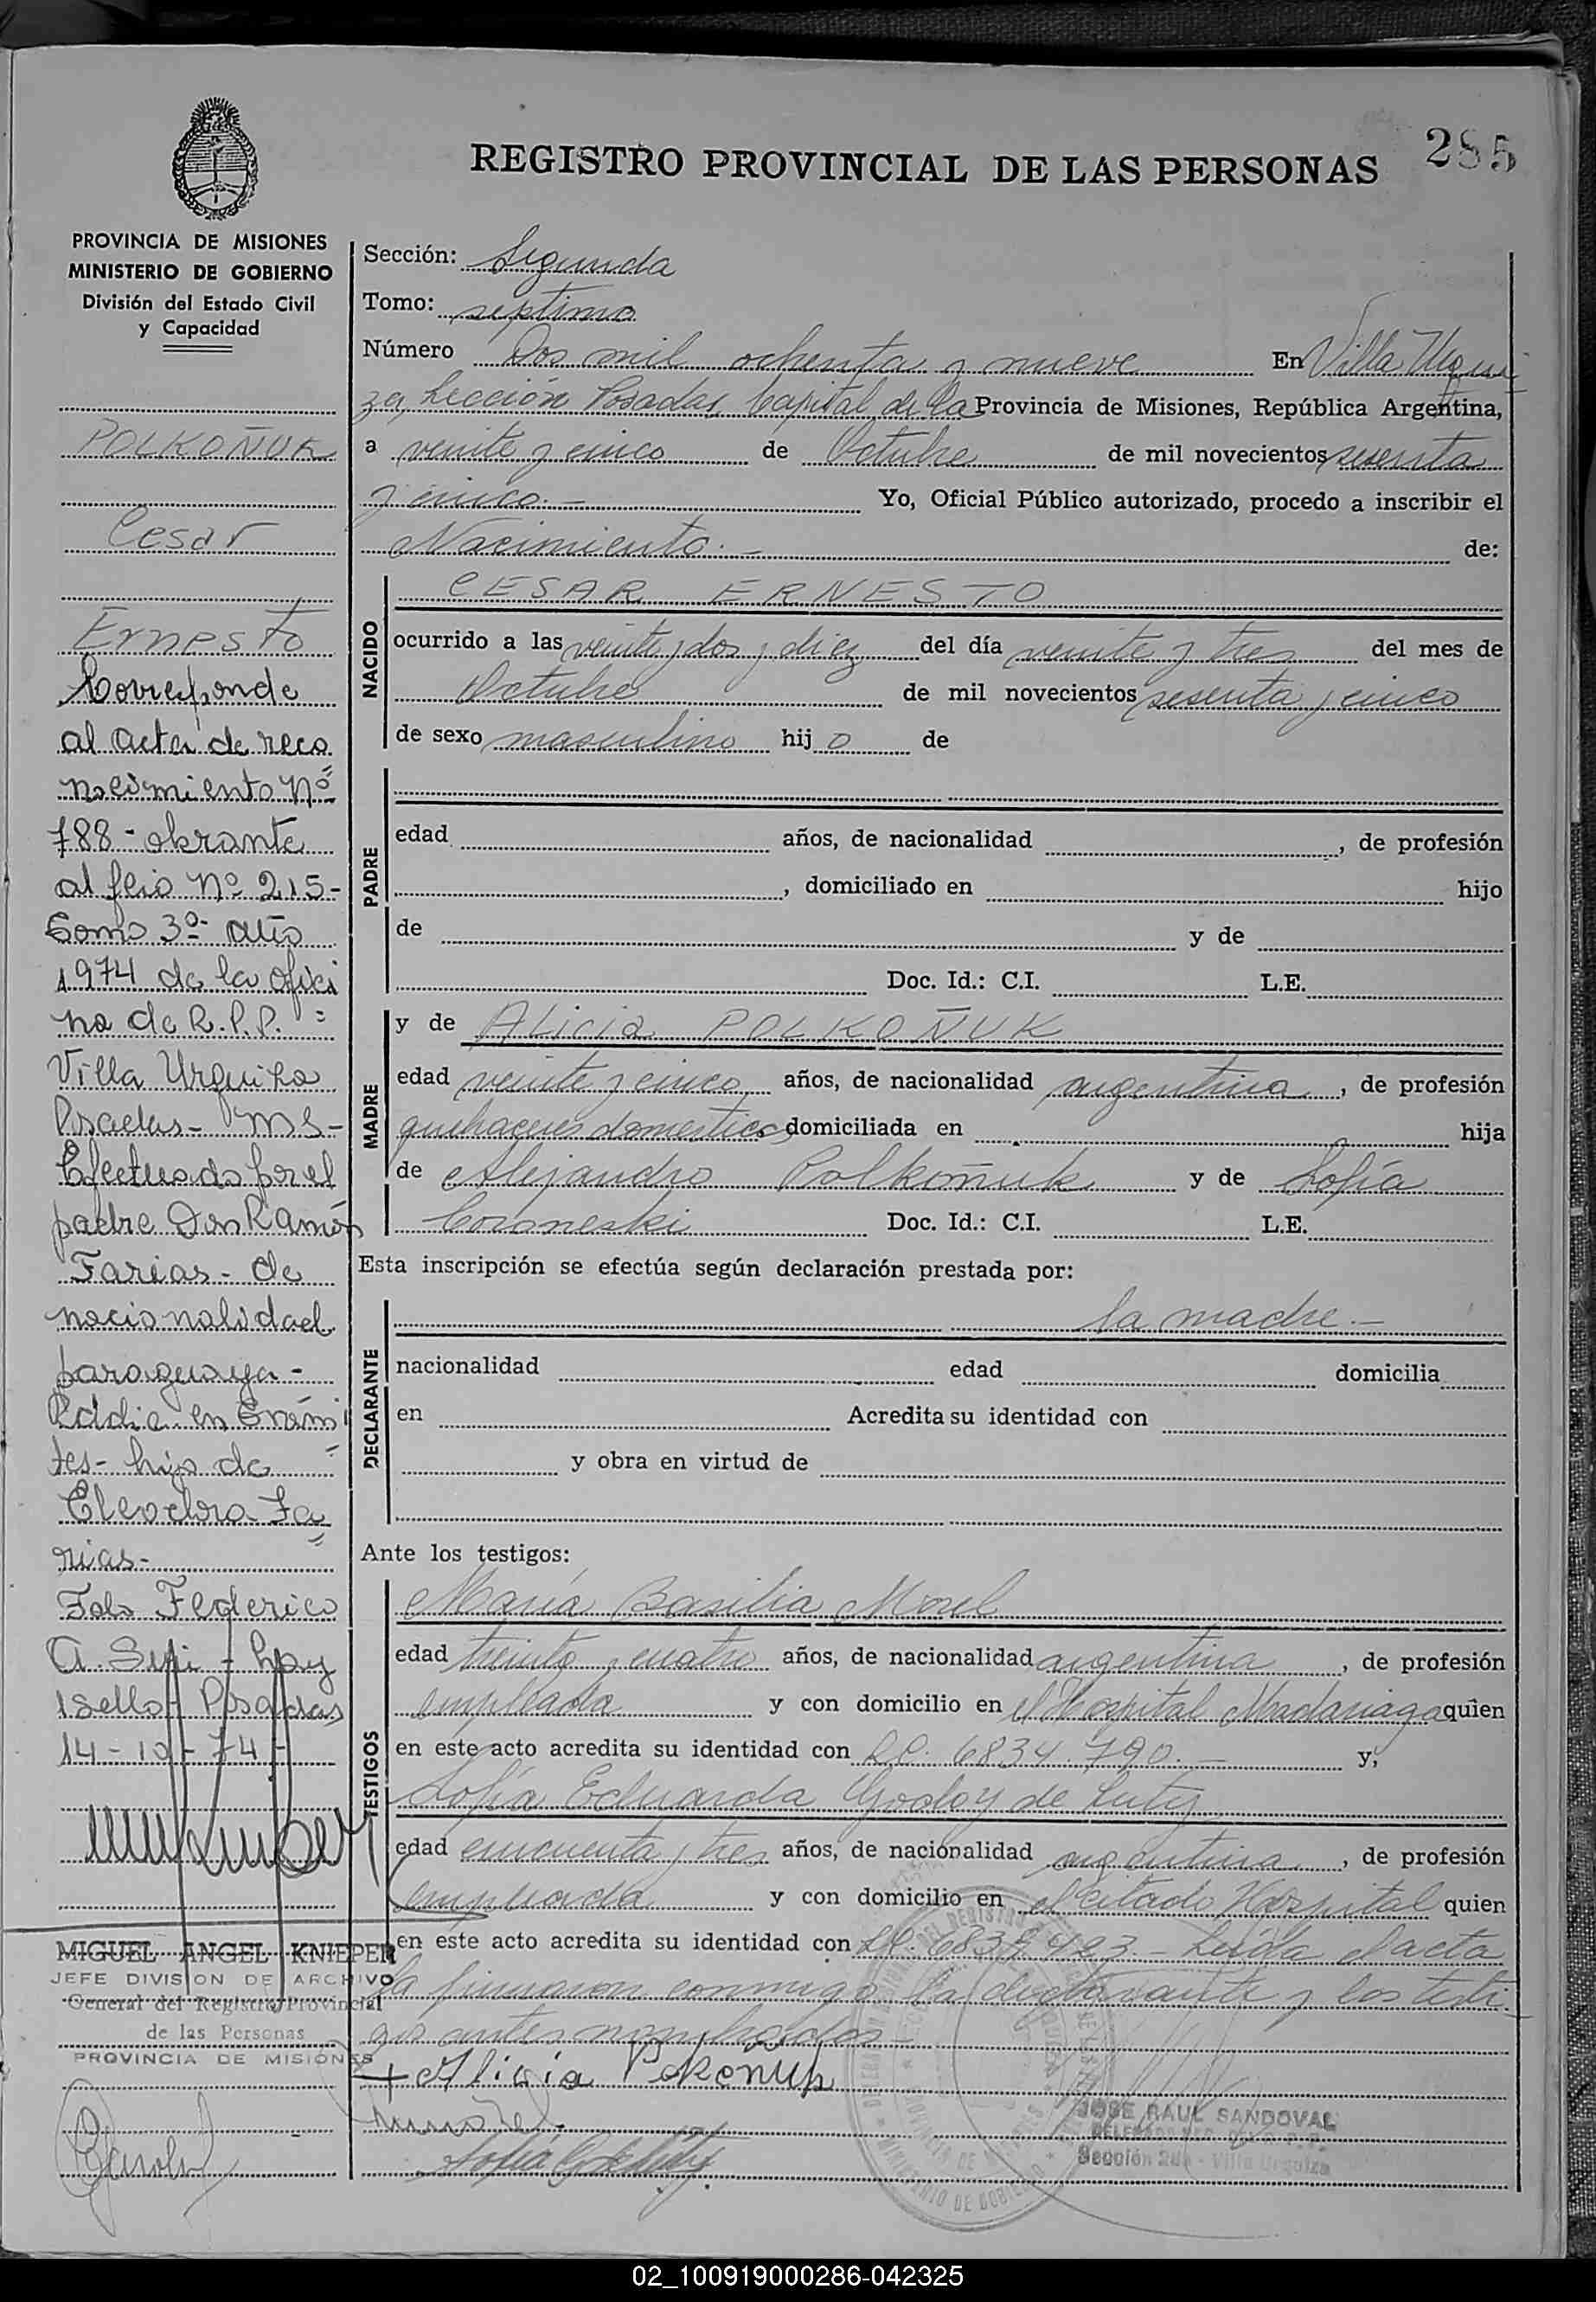 REGISTRO PROVINCIAL DE LAS PERSONAS
285
PROVINCIA DE MISIONES
MINISTERIO DE GOBIERNO
División del Estado Civil
y Capacidad
POLKOÑUK
Cesar
Ernesto
Corresponde
al acta de reco
nocimiento Nº
788 - obrante
al folio Nº 215-
Tomo 3º año
1974 de la ofici
na de R.P.P.
Villa Urquiza
Posadas - Ms -
Efectuado por el
padre Don Ramón
Farias - de
nacionalidad
paraguaya -
en trámi
tes - hijo de
Cleodora Fa
rias -
Fdo Federico
A. - hay
1 sello - Posadas
14 - 10 - 74 -
MIGUEL ANGEL KNIEPER
JEFE DIVISION DE ARCHIVO
General del Registro Provincial
de las Personas
PROVINCIA DE MISIONES
Sección: Segunda
Tomo: septimo
Número Dos mil ochenta y nueve En Villa Urqui
za, Sección Posadas, Capital de la Provincia de Misiones, República Argentina,
a veinte y cinco de Octubre de mil novecientos sesenta
y cinco.- Yo, Oficial Público autorizado, procedo a inscribir el
Nacimiento.- de:
NACIDO
CESAR ERNESTO
ocurrido a las veinte y dos y diez del día veinte y tres del mes de
Octubre de mil novecientos sesenta y cinco
de sexo masculino hij o de
PADRE
edad años, de nacionalidad , de profesión
, domiciliado en hijo
de y de
Doc. Id.: C.I. L.E.
MADRE
y de Alicia POLKOÑUK
edad veinte y cinco años, de nacionalidad argentina, de profesión
quehaceres domesticos domiciliada en hija
de Alejandro Polkoñuk y de Sofía
Coroneski Doc. Id.: C.I. L.E.
Esta inscripción se efectúa según declaración prestada por:
DECLARANTE
la madre.-
nacionalidad edad domicilia
en Acredita su identidad con
y obra en virtud de
Ante los testigos:
TESTIGOS
María Basilia Morel
edad treinta y cuatro años, de nacionalidad argentina, de profesión
empleada y con domicilio en el Hospital Madariaga quien
en este acto acredita su identidad con 6834.790.- y,
Sofía Eduarda Godoy de
edad cincuenta y tres años, de nacionalidad argentina, de profesión
empleada y con domicilio en el citado Hospital quien
en este acto acredita su identidad con - Leída el acta
la firmaron conmigo la declarante y los testi-
gos antes nombrados -
+ Alicia
JOSE RAUL SANDOVAL
Sección 2da - Villa Urquiza
02_100919000286-042325